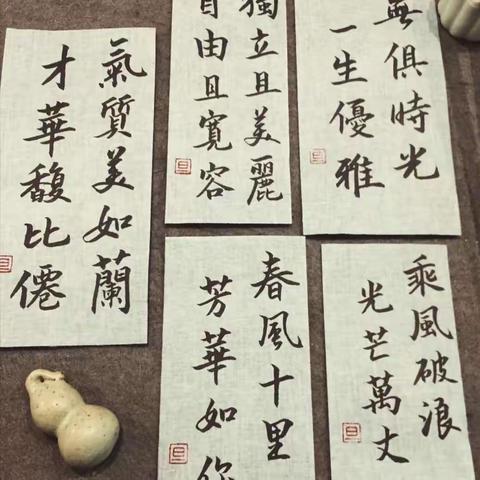 無俱時光
一生優雅
獨立且美麗
自由且寬容
氣質美如蘭
才華馥比僊
乘風破浪
光芒萬丈
春風十里
芳華如你